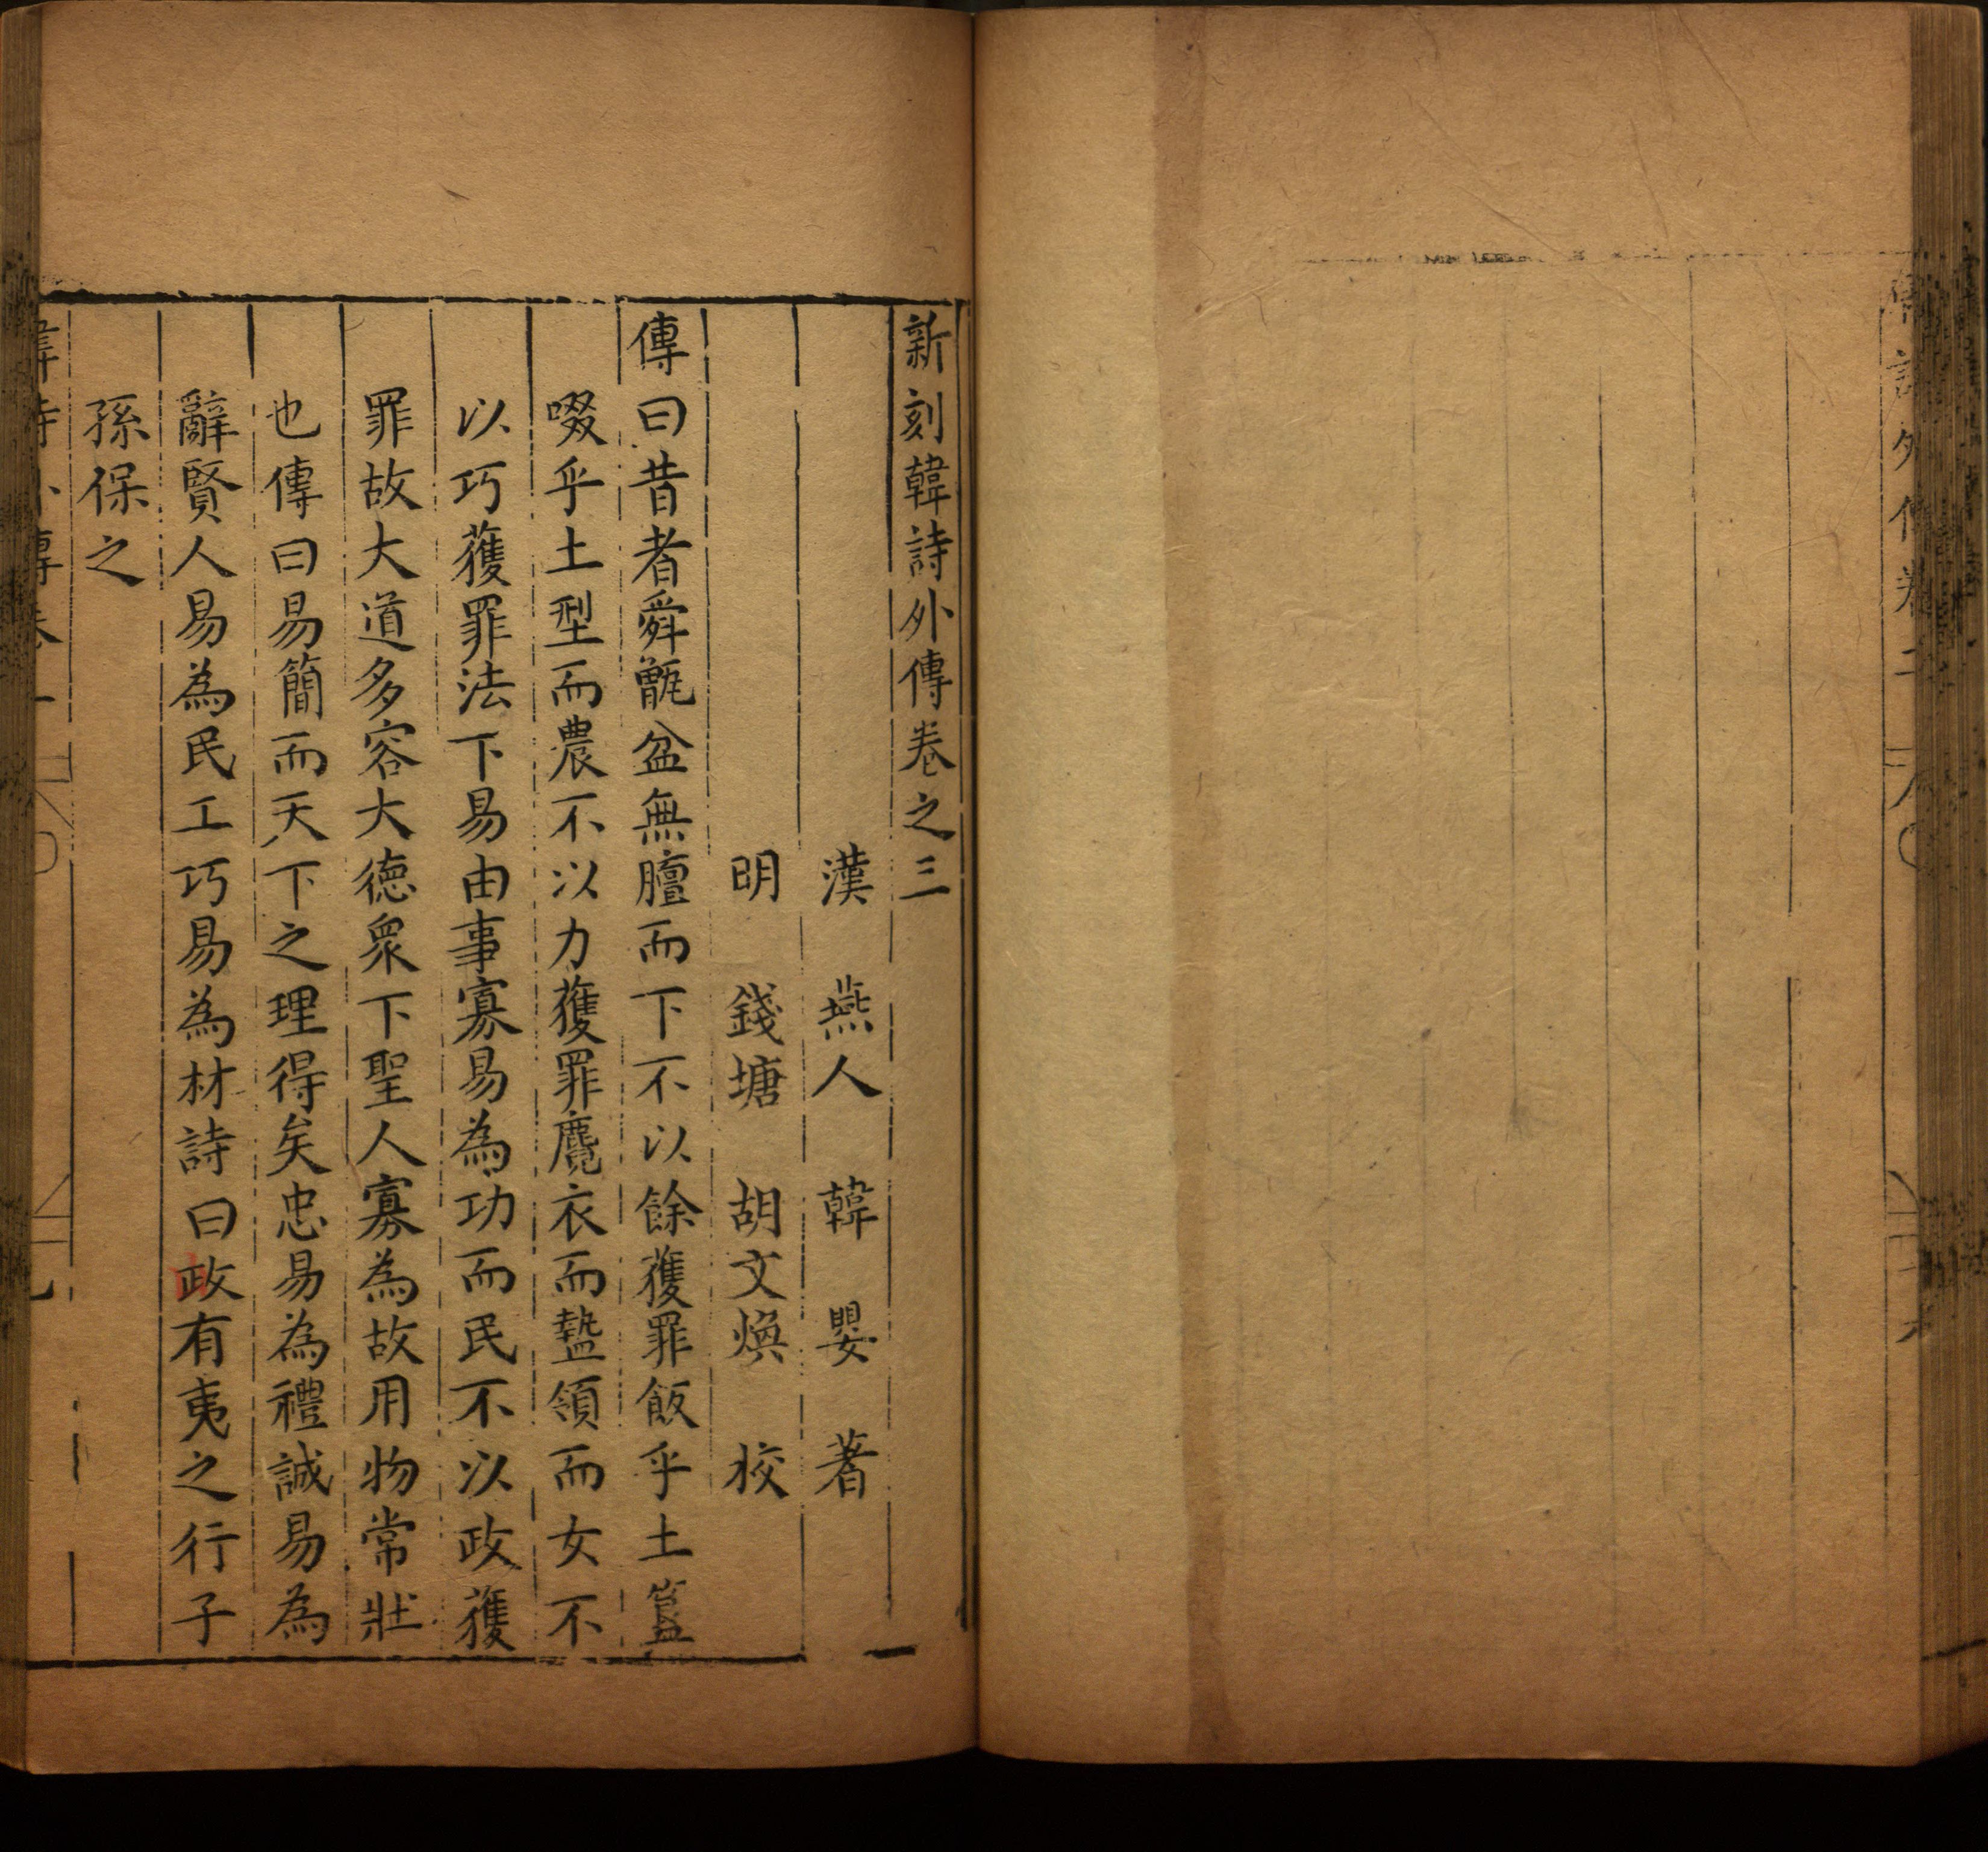 新刻韓詩外傳卷之三
漢 燕人 韓 嬰 著
明 錢塘 胡文煥 校
傳曰昔者舜甑盆無膻而下不以餘獲罪飯乎土簋
啜乎土型而農不以力獲罪麑衣而盩領而女不
以巧獲罪法下易由事寡易為功而民不以政獲
罪故大道多容大德衆下聖人寡為故用物常壯
也傳曰易簡而天下之理得矣忠易為禮誠易為
辭賢人易為民工巧易為材詩曰政有夷之行子
孫保之